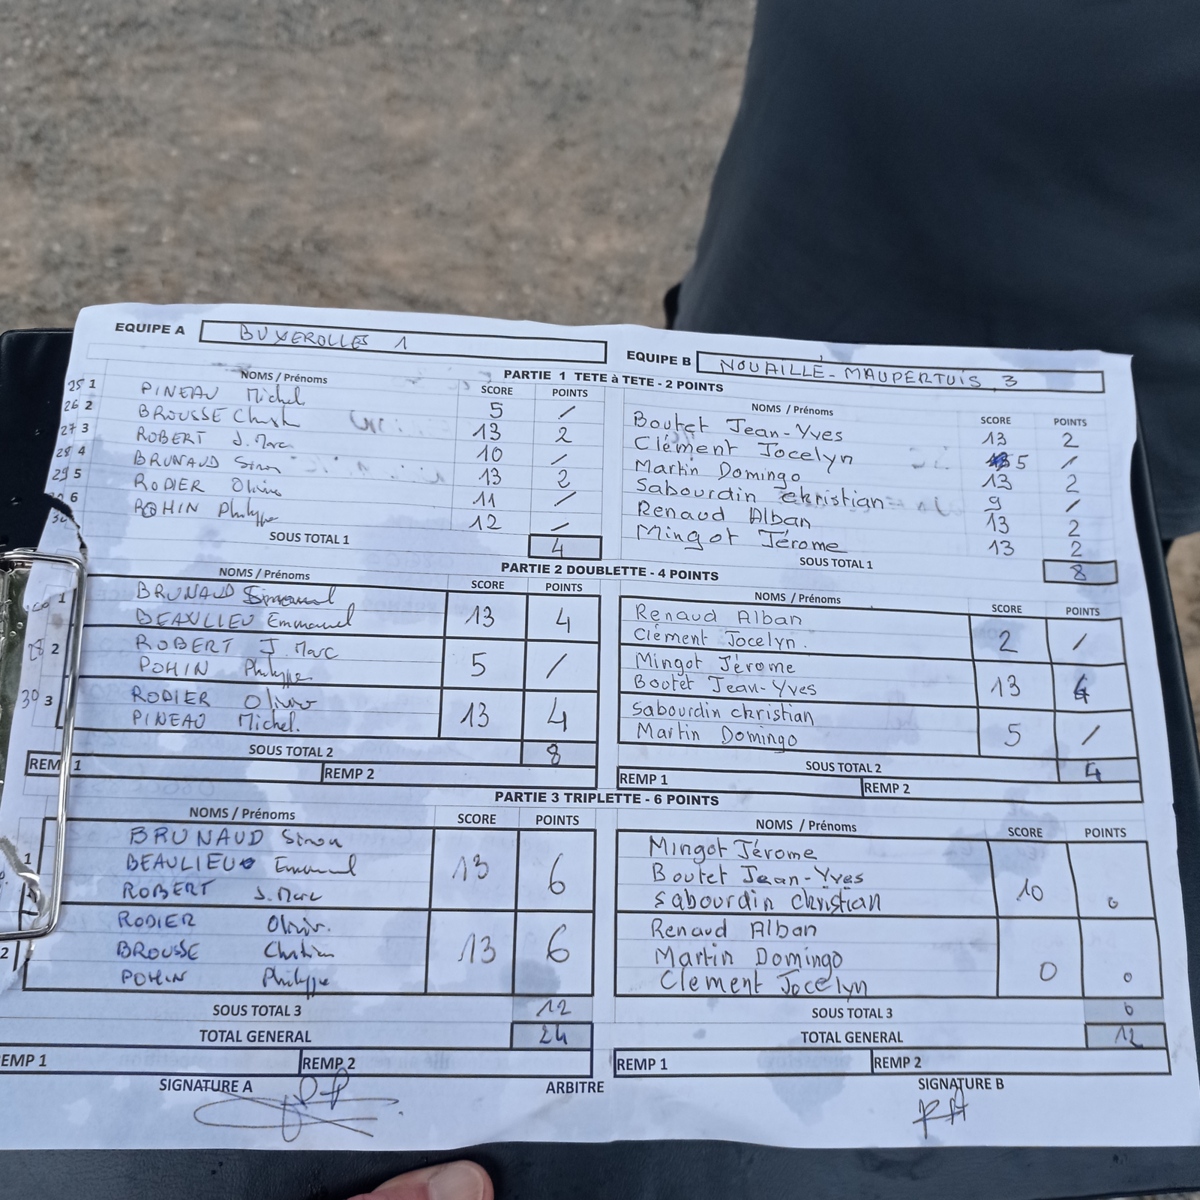 EQUIPE A BUXEROLLES 1 EQUIPE B NOUAILLÉ-MAUPERTUIS 3
PARTIE 1 TETE à TETE - 2 POINTS
NOMS / Prénoms SCORE POINTS NOMS / Prénoms SCORE POINTS
25 1 PINEAU Michel 5 / Boutet Jean-Yves 13 2
26 2 BROUSSE 13 2 Clément Jocelyn 5 /
27 3 ROBERT J. Marc 10 / Martin Domingo 13 2
28 4 BRUNAUD Simon 13 2 Sabourdin christian 9 /
29 5 RODIER Olivier 11 / Renaud Alban 13 2
6 POHIN Philippe 12 / Mingot Jérome 13 2
SOUS TOTAL 1 4 SOUS TOTAL 1 8
PARTIE 2 DOUBLETTE - 4 POINTS
NOMS / Prénoms SCORE POINTS NOMS / Prénoms SCORE POINTS
1 BRUNAUD 13 4 Renaud Alban 2 /
BEAULIEU Emmanuel Clément Jocelyn.
2 ROBERT J. Marc 5 / Mingot Jérome 13 4
POHIN Philippe Boutet Jean-Yves
30 3 RODIER Olivier 13 4 Sabourdin christian 5 /
PINEAU Michel. Martin Domingo
SOUS TOTAL 2 8 SOUS TOTAL 2 4
REM 1 REMP 2 REMP 1 REMP 2
PARTIE 3 TRIPLETTE - 6 POINTS
NOMS / Prénoms SCORE POINTS NOMS / Prénoms SCORE POINTS
BRUNAUD Simon Mingot Jérome
1 BEAULIEU Emmanuel 13 6 Boutet Jean-Yves 10 0
ROBERT J. Marc Sabourdin christian
RODIER Olivier. Renaud Alban
2 BROUSSE Christian 13 6 Martin Domingo 0 0
POHIN Philippe Clement Jocelyn
SOUS TOTAL 3 12 SOUS TOTAL 3 0
TOTAL GENERAL 24 TOTAL GENERAL 12
EMP 1 REMP 2 REMP 1 REMP 2
SIGNATURE A ARBITRE SIGNATURE B